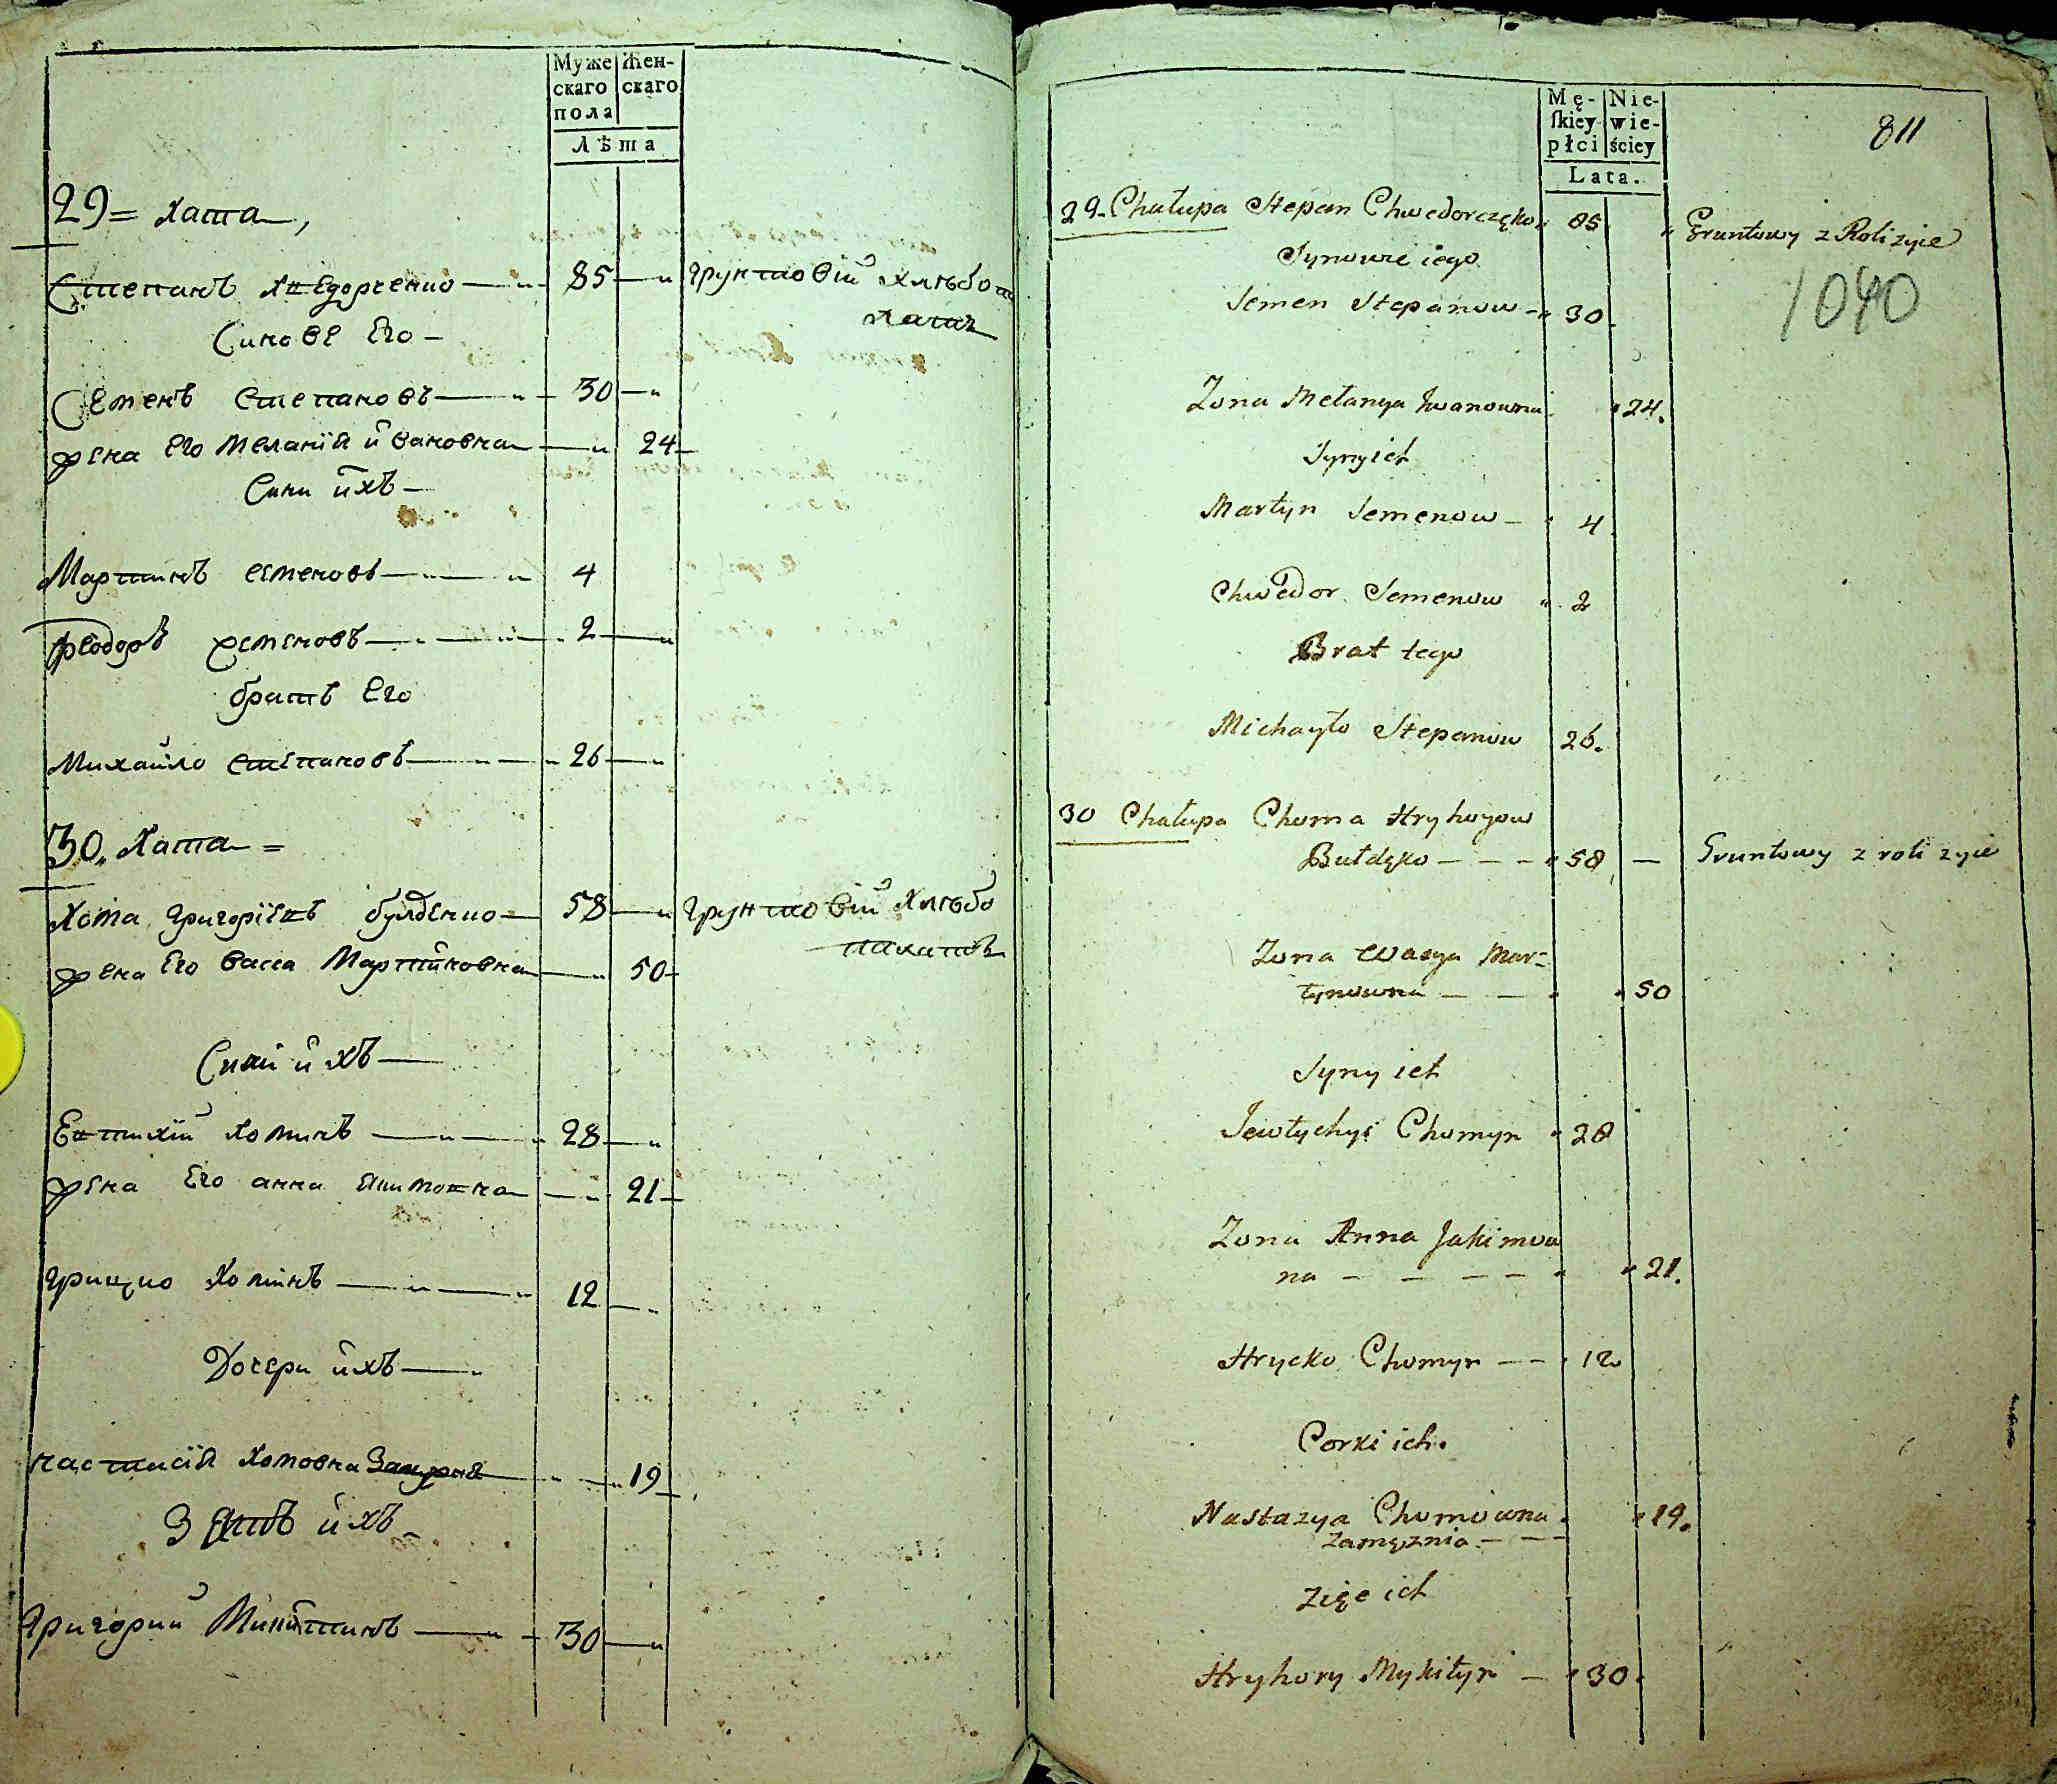 Муже
скаго
пола
Жен-
скаго
Лѣта
29= Хата,
Степанъ Хведорченко — 85 — грунтовій хлѣбо
пахат
Синове Его —
Семенъ Степановъ — 30 —
жена Его Меланія Йвановна — 24 —
Сини йхъ —
Мартинъ семеновъ — 4
Феодоръ семеновъ — 2 —
братъ Его
Михайло степановъ — 26 —
30. Хата =
Хома григоріевъ булденко — 58 — грунтовій Хлѣбо
пахатъ
жена Его васса Мартиновна — 50 —
Сини йхъ —
Евтихій Хоминъ — 28 —
жена Его анна Якимовна — 21 —
грицко Хоминъ — 12 —
Дочери йхъ —
настасія Хомовна Замужня — 19 —
Зять йхъ —
Григорий Микитинъ — 30 —
Mę-
skiey
płci
Nie-
wie-
ściey
Lata.
811
1040
29. Chałupa Stepan Chwedorczęko 85 Gruntowy z Roli zyie
Synowie iego
Semen Stepanow — 30
Zona Melanya Jwanowna 24.
Syny ich
Martyn Semenow — 4
Chwedor Semenow 2
Brat tego
Michayło Stepanow 26.
30 Chałupa Choma Hryhoyow
Bułdęko — — — 58 — Gruntowy z roli zyie
Zona Wasya Mar=
tynowna — — 50
Syny ich
Jewtychyi Chomyn 28
Zona Anna Jakimow
na — — — — 21.
Hrycko Chomyn — — 12
Corki ich.
Nastazya Chomowna 19.
Zamężnia — —
Zięc ich
Hryhory Mykityn — 30